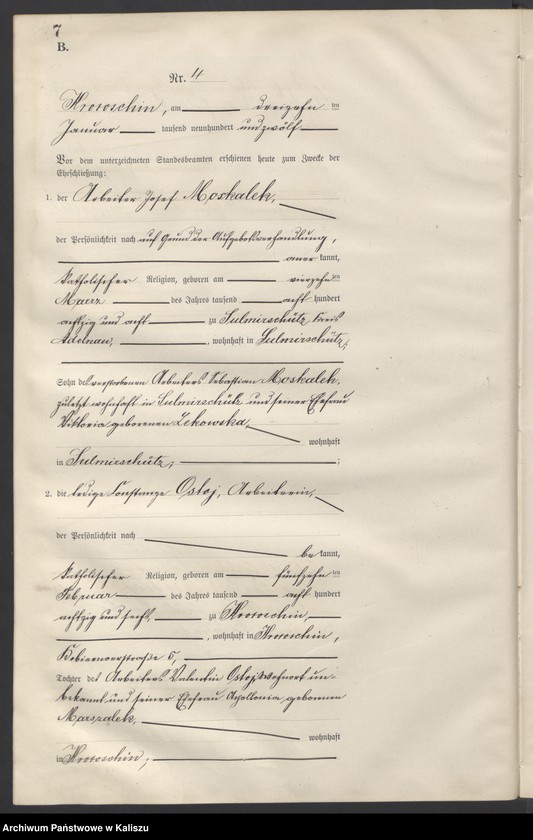 7
B.
Nr. 4
Krotoschin, am dreizehn ten
Januar tausend neunhundert undzwölf
Vor dem unterzeichneten Standesbeamten erschienen heute zum Zwecke der
Eheschließung:
1. der Arbeiter Josef Moskalek,
der Persönlichkeit nach auf Grund der Aufgebotsverhandlung,
anerkannt,
katholischer Religion, geboren am vierzehn ten
Maerz des Jahres tausend acht hundert
achtzig und acht zu Sulmirschütz, Kreis
Adelnau, wohnhaft in Sulmirschütz,
Sohn des verstorbenen Arbeiters Sebastian Moskalek,
zuletzt wohnhaft in Sulmirschütz und seiner Ehefrau
Viktoria geborenen Zekowska,
wohnhaft
in Sulmirschütz;
2. die ledige Konstanze Ostoj, Arbeiterin,
der Persönlichkeit nach
bekannt,
katholischer Religion, geboren am fünfzehn ten
Februar des Jahres tausend acht hundert
achtzig und sechs, zu Krotoschin,
, wohnhaft in Krotoschin,
Kobiernoerstraße 5,
Tochter des Arbeiters Valentin Ostoj, Wohnort un-
bekannt und seiner Ehefrau Apollonia, geborenen
Marszalek,
wohnhaft
in Krotoschin;
Archiwum Państwowe w Kaliszu